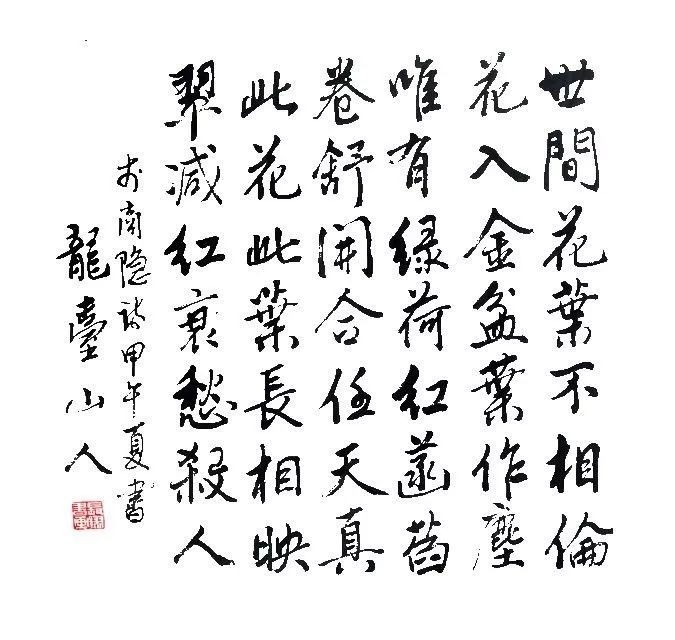 世間花葉不相倫
花入金盆葉作塵
唯有绿荷红菡萏
卷舒開合任天真
此花此葉長相映
翠減红衰愁殺人
李商隐诗甲午夏書
龍臺山人